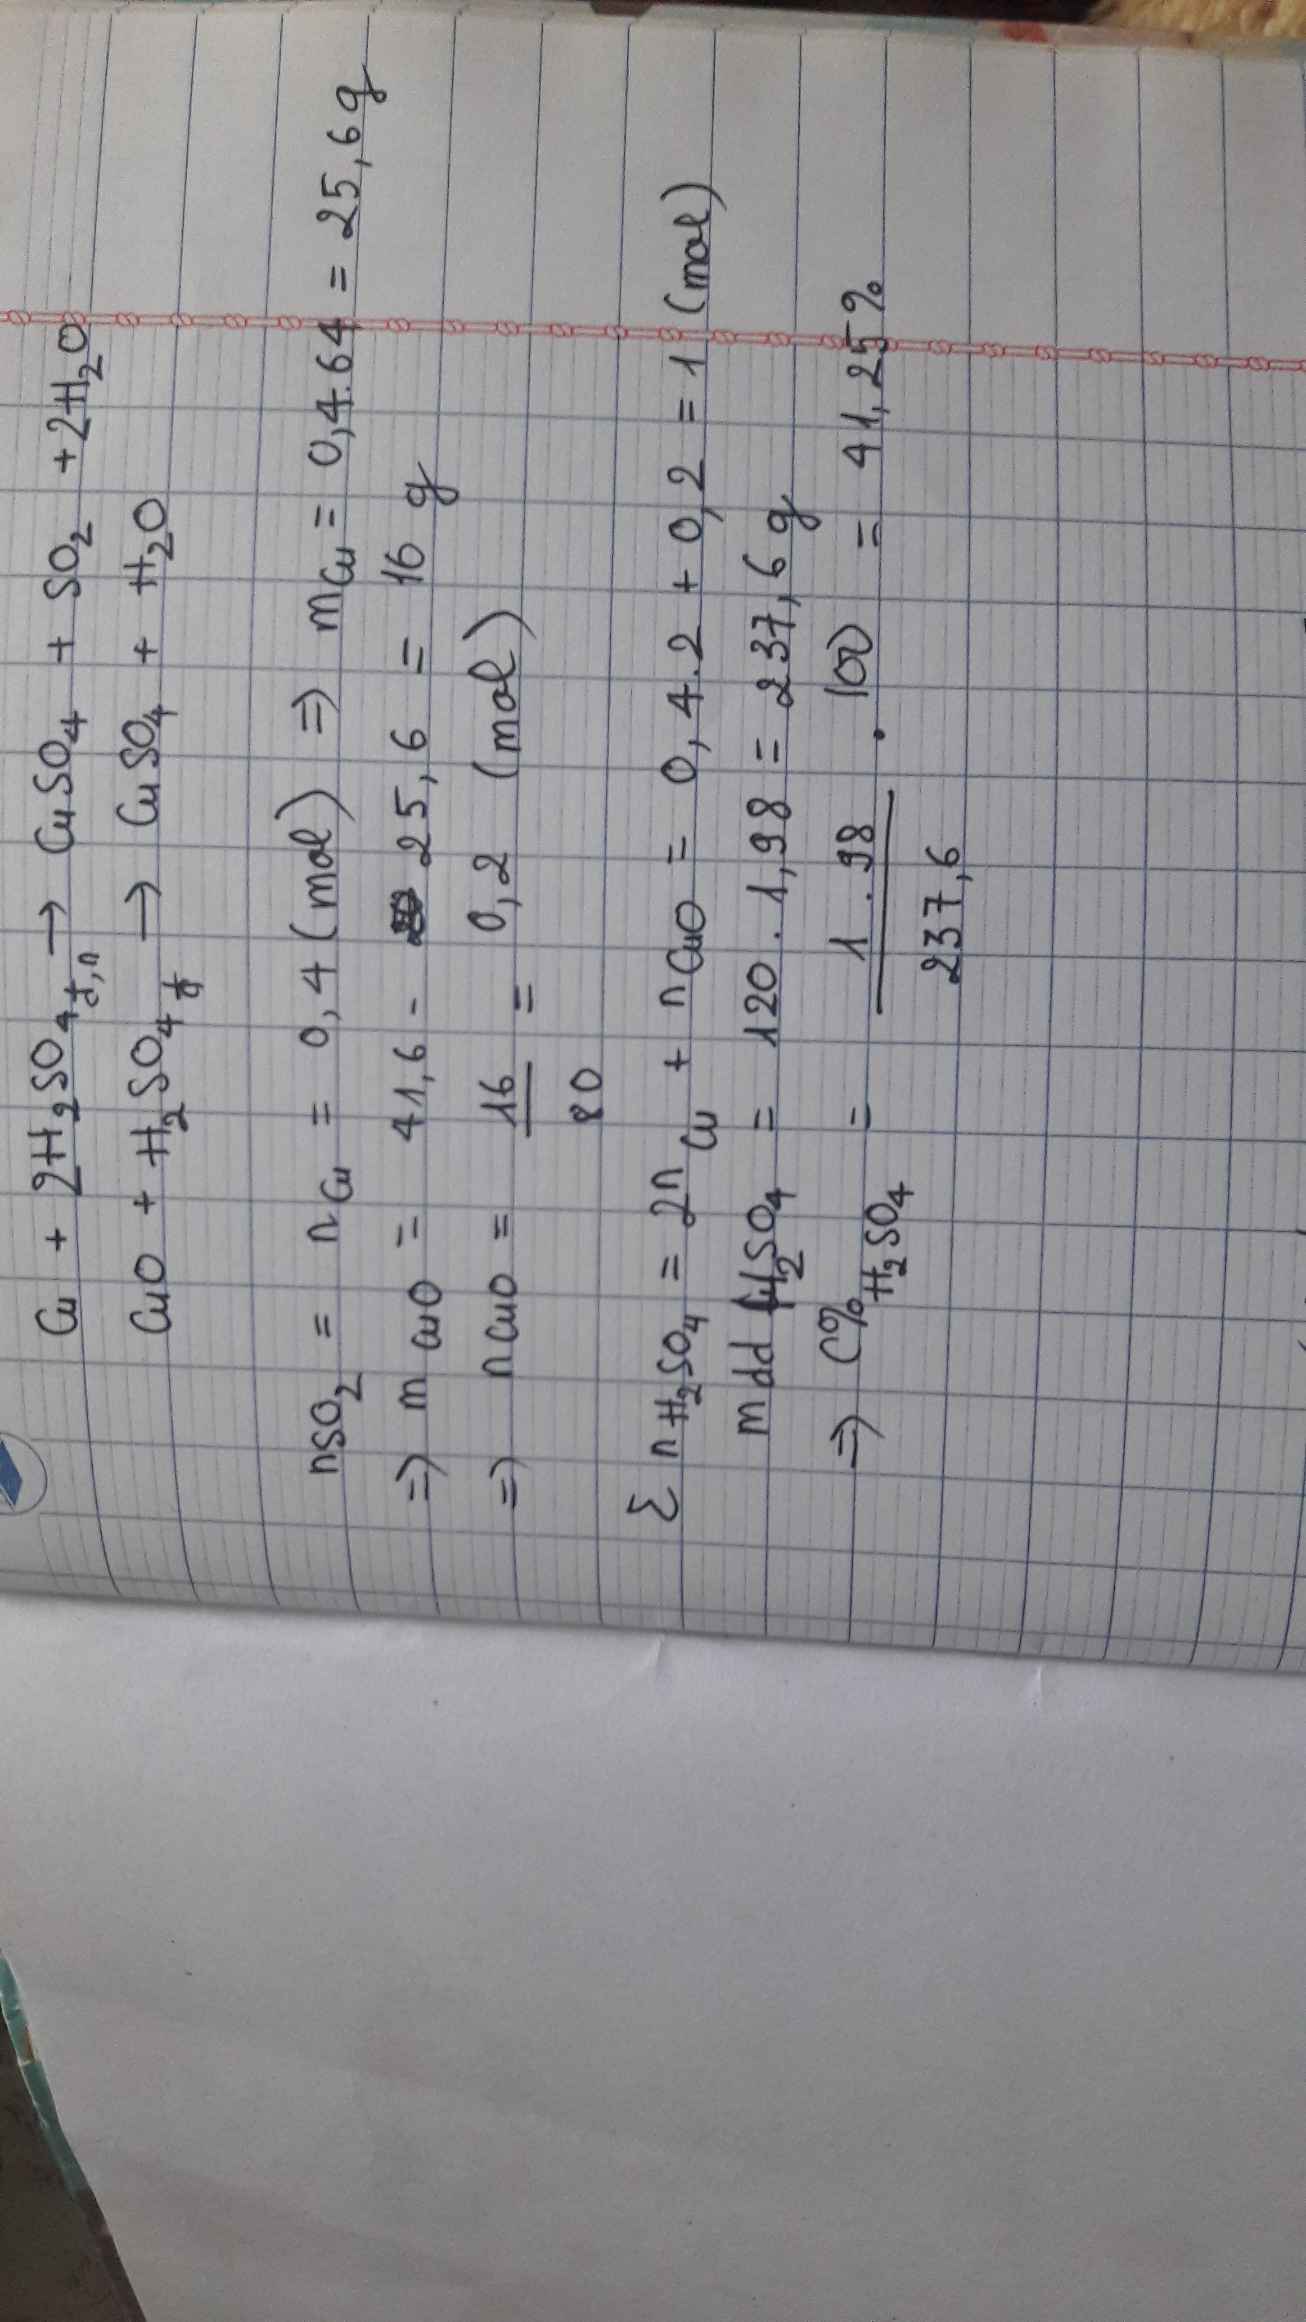 Cu + 2H₂SO₄ đ,n → CuSO₄ + SO₂ + 2H₂O
CuO + H₂SO₄ đ → CuSO₄ + H₂O
nSO₂ = nCu = 0,4 (mol) => mCu = 0,4.64 = 25,6 g
=> mCuO = 41,6 - 25,6 = 16 g
=> nCuO = 16/80 = 0,2 (mol)
Σ nH₂SO₄ = 2nCu + nCuO = 0,4.2 + 0,2 = 1 (mol)
mdd H₂SO₄ = 120.1,98 = 237,6 g
=> C% H₂SO₄ = 1.98/237,6 . 100 = 41,25%